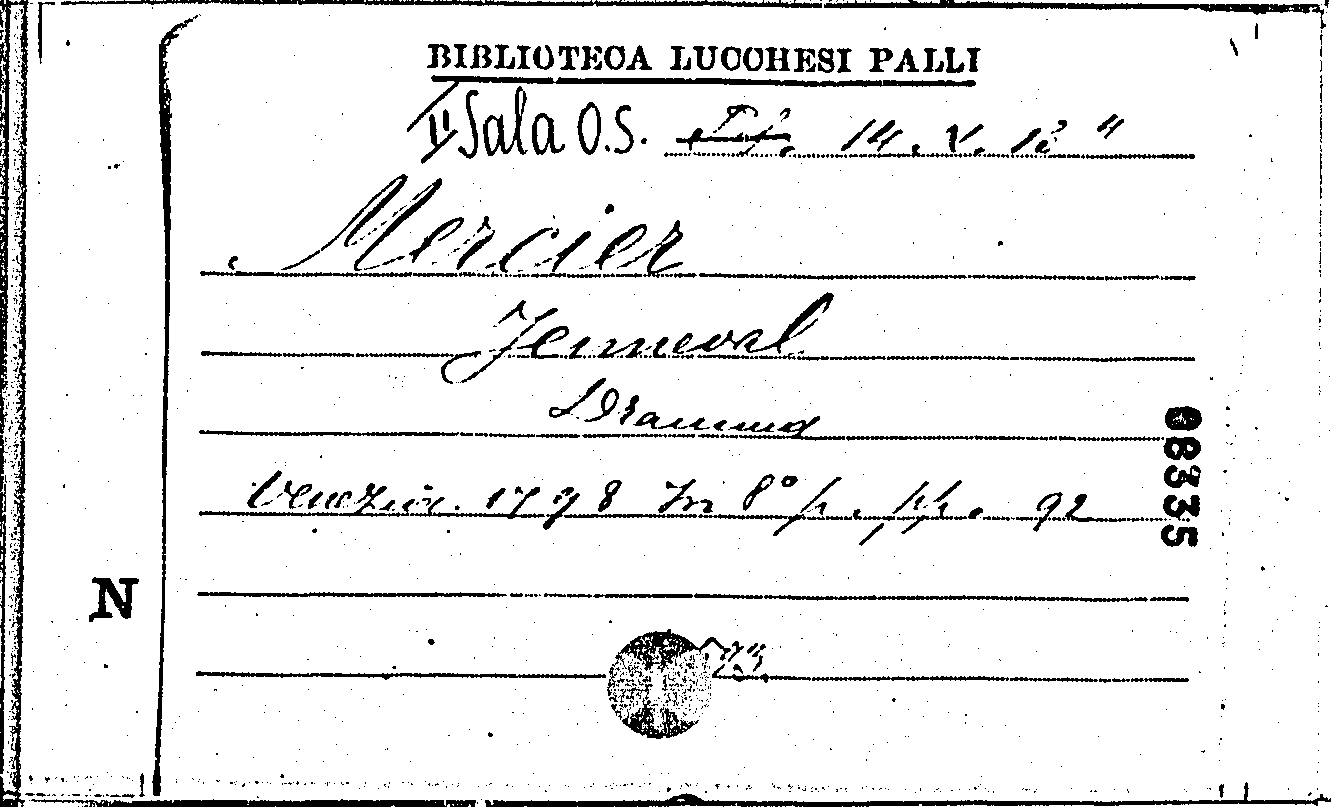 BIBLIOTECA LUCCHESI PALLI
II Sala O.S. 14. V. 13 4
Mercier
Jenneval
Dramma
Venezia 1798 In 8° p. pp. 92
08335
N